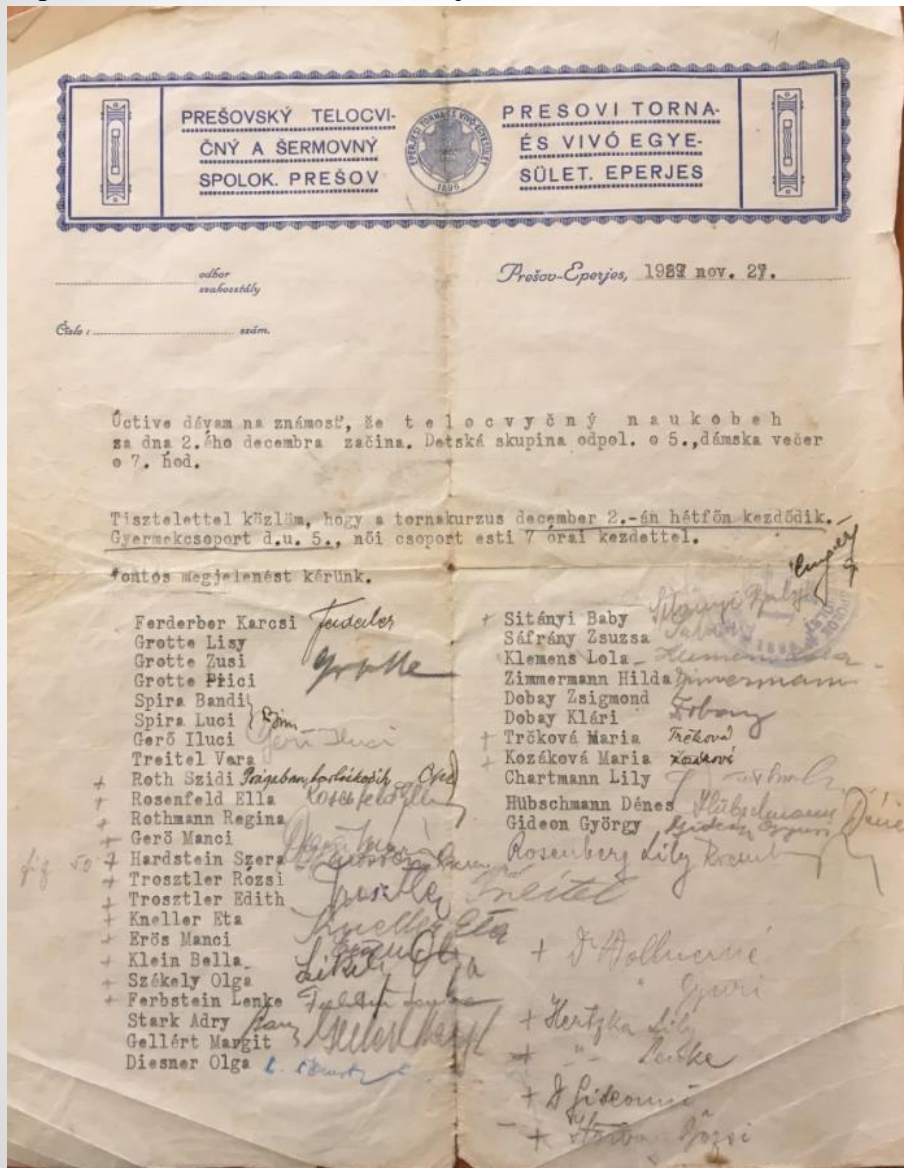 PREŠOVSKÝ TELOCVI-
ČNÝ A ŠERMOVNÝ
SPOLOK. PREŠOV
EPERJESI TORNA ÉS VIVÓ EGYESÜLET
1896
PRESOVI TORNA-
ÉS VIVÓ EGYE-
SÜLET. EPERJES
odbor
szakosztály
Prešov-Eperjes, 1937 nov. 27.
Číslo : szám.
Úctive dávam na známosť, že telocvyčný naukobeh
za dna 2.ého decembra začina. Detská skupina odpol. o 5.,dámska večer
o 7. hod.
Tisztelettel közlöm, hogy a tornakurzus december 2.-án hétfőn kezdődik.-
Gyermekcsoport d.u. 5., női csoport esti 7 órai kezdettel.
Pontos megjelenést kérünk.
Ferderber Karcsi Federber
Grotte Lisy
Grotte Zusi Grotte
Grotte Piici
Spira Bandi
Spira Luci
Gerő Iluci Gerő Iluci
Treitel Vara
+ Roth Szidi Prágaban tartózkodik
+ Rosenfeld Ella Rosenfeld Ella
+ Rothmann Regina
+ Gerő Manci
+ Hardstein Szera
+ Trosztler Rózsi
+ Trosztler Edith Trosztler Treitel
+ Kneller Eta Kneller Eta
+ Erős Manci
+ Klein Bella
+ Székely Olga Székely Olga
+ Ferbstein Lenke
Stark Adry
Gellért Margit Gellért Margit
Diesner Olga
+ Sitányi Baby Sitányi Baby
Sáfrány Zsuzsa
Klemens Lola Klemens Lola
Zimmermann Hilda Zimmermann
Dobay Zsigmond
Dobay Klári Dobay
+ Trčková Maria Trčková
+ Kozáková Maria Kozáková
Chartmann Lily
Hübschmann Dénes Hübschmann Dénes
Gideon György Gideon
Rosenberg Lily
+ Dr
Gyuri
+ Hertzka Lily
+ -"-
+ Dr Gideonné
+